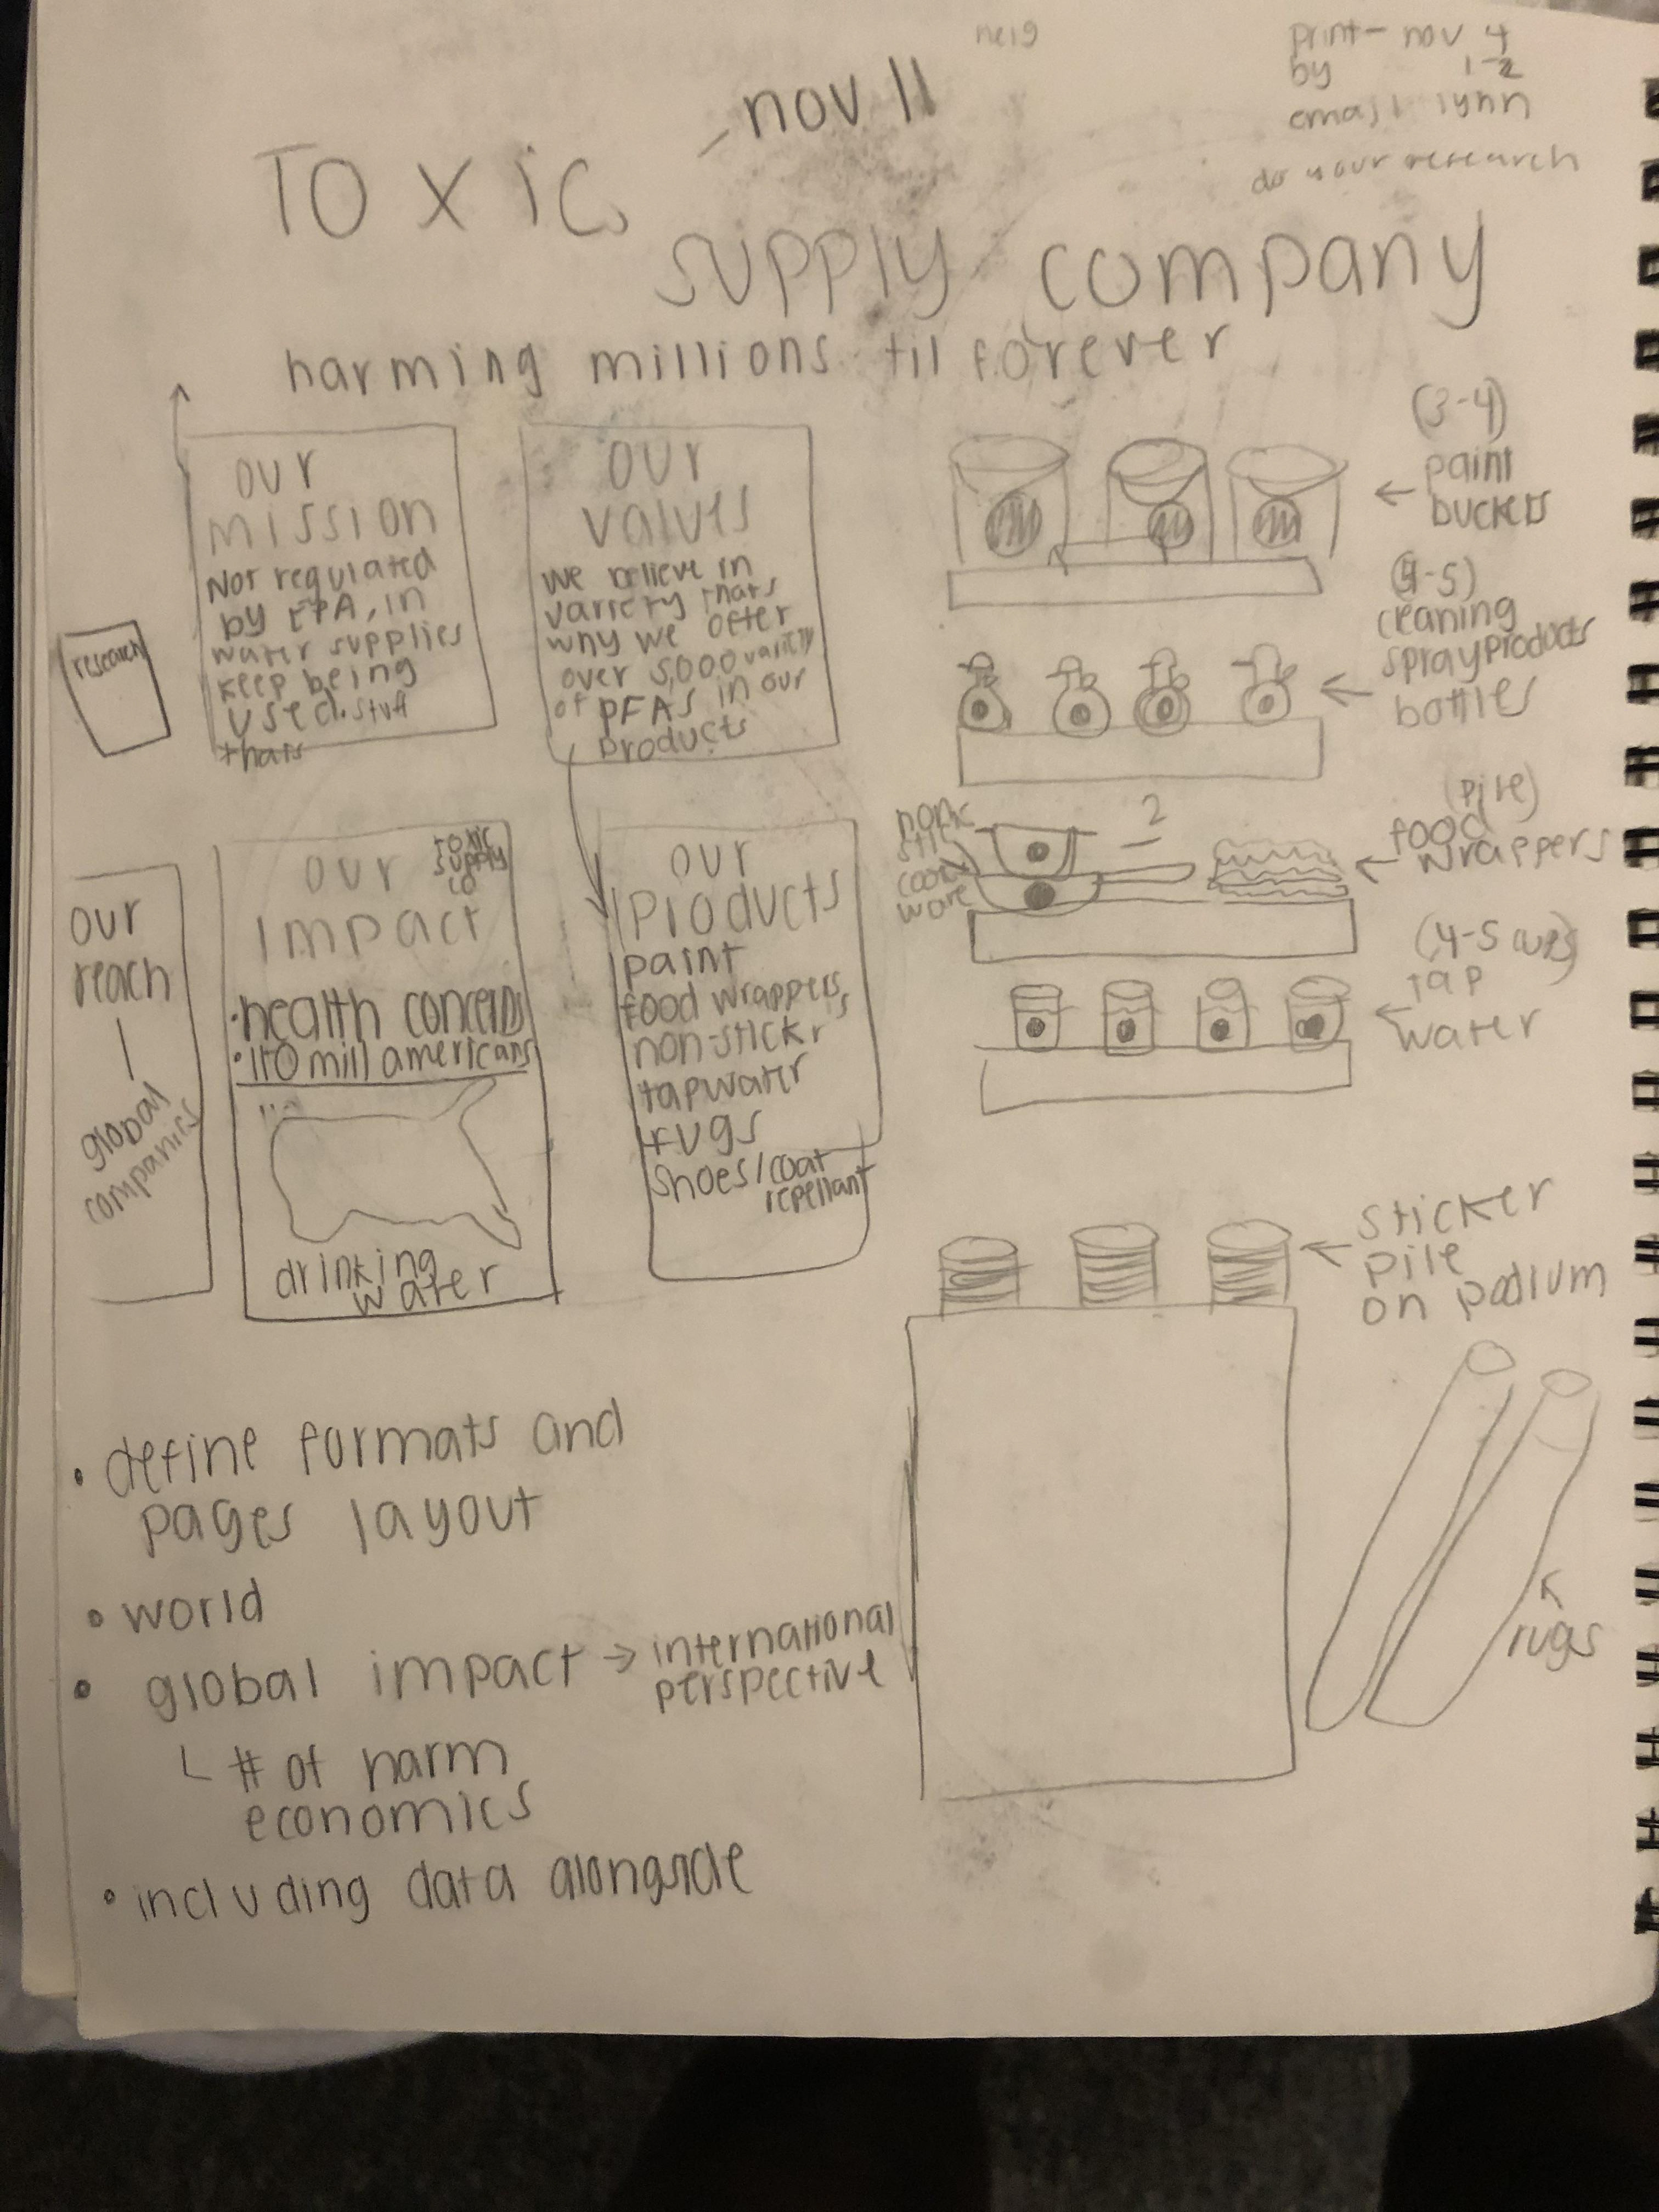 print - nov 4
by 1-2
email lynn
do your research
- nov 11
Toxic
supply company
harming millions til forever
research
our
mission
Not regulated
by EPA, in
water supplies
keep being
used. stuff
thats
our
values
we believe in
variety thats
why we offer
over 5,000 variety
of PFAS in our
products
(3-4)
paint
buckets
(4-5)
cleaning
spray products
bottles
non-
stic
cook
ware
2
(pile)
food
wrappers
(4-5 cups)
tap
water
our
reach
global
companies
our
impact
toxic
supply
co
• health concerns
• 110 mill americans
drinking
water
our
Products
paint
food wrappers
non-stick
tapwater
rugs
shoes/coat
repellant
sticker
pile
on podium
rugs
• define formats and
pages layout
• world
• global impact → international
perspective
# of harm
economics
• including data alongside